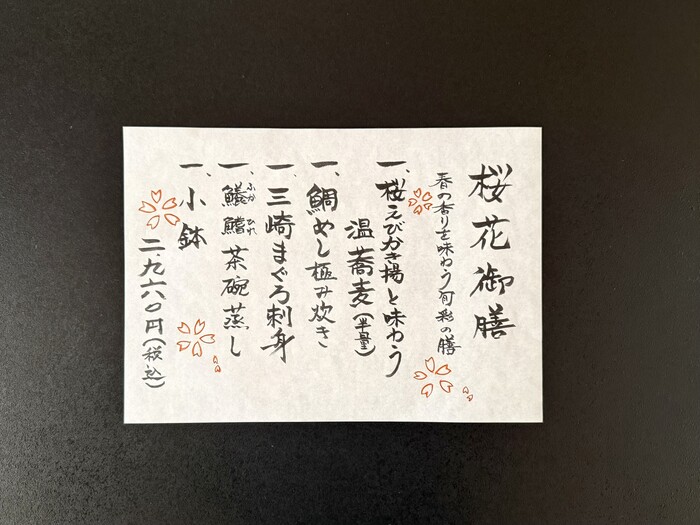 桜花御膳
春の香りを味わう旬彩の膳
一、桜えびかき揚と味わう
温蕎麦(半量)
一、鯛めし極み炊き
一、三崎まぐろ刺身
一、鱶鰭茶碗蒸し
ふか ひれ
一、小鉢
二、九六〇円(税込)